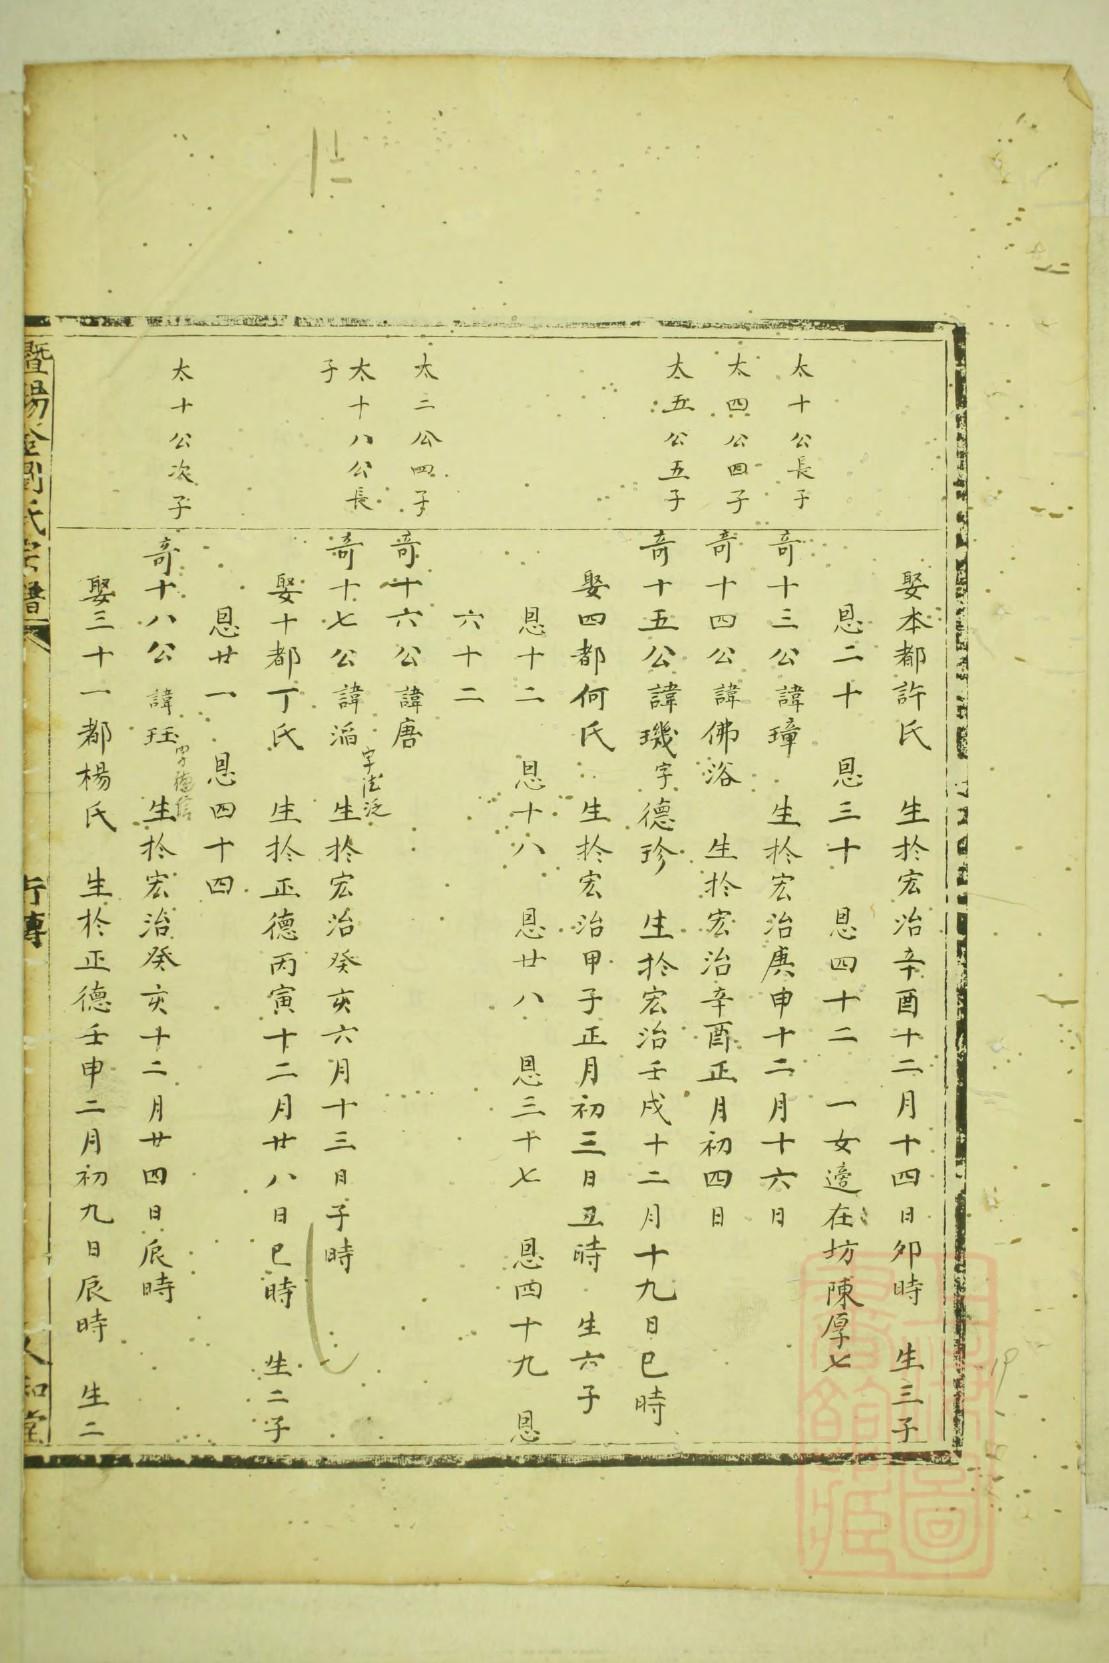 娶本都許氏　生於宏治辛酉十二月十四日卯時　生三子
恩二十　恩三十　恩四十二　一女適在坊陳厚七
太十公長子
奇十三公諱璋　生於宏治庚申十二月十六日
太四公四子
奇十四公諱佛浴　生於宏治辛酉正月初四日
太五公五子
奇十五公諱璣字德珍　生於宏治壬戌十二月十九日巳時
娶四都何氏　生於宏治甲子正月初三日丑時　生六子
恩十二　恩十八　恩廿八　恩三十七　恩四十九　恩
六十二
太二公四子
奇十六公諱唐
太十八公長
子
奇十七公諱滔　生於宏治癸亥六月十三日子時
娶十都丁氏　生於正德丙寅十二月廿八日巳時　生二子
恩廿一　恩四十四
太十公次子
奇十八公　諱玨　字德信　生於宏治癸亥十二月廿四日辰時
娶三十一都楊氏　生於正德壬申二月初九日辰時　生二
暨陽金澗氏宗譜
行傳
人和堂